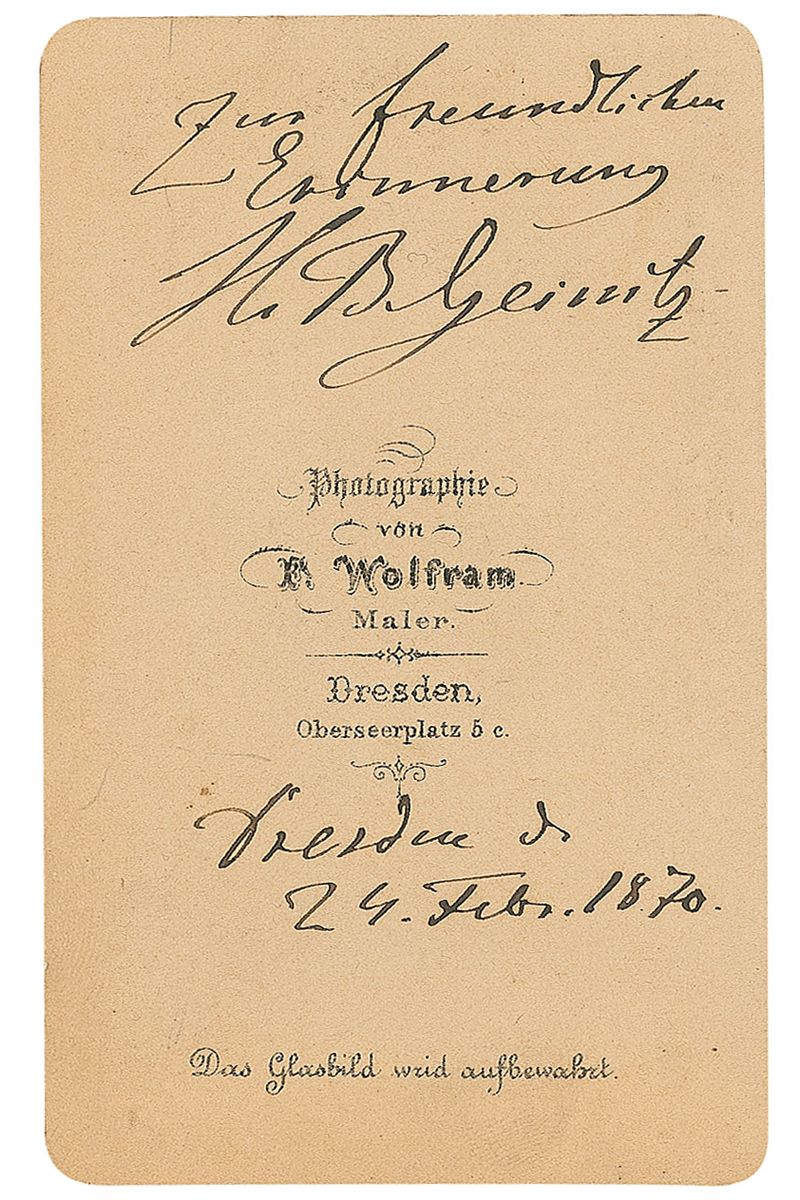 Zur freundlichen
Erinnerung
H. B. Geinitz
Photographie
von
F. Wolfram.
Maler.
Dresden,
Oberseerplatz 5 c.
Dresden d.
24. Febr. 1870.
Das Glasbild wrid aufbewahrt.